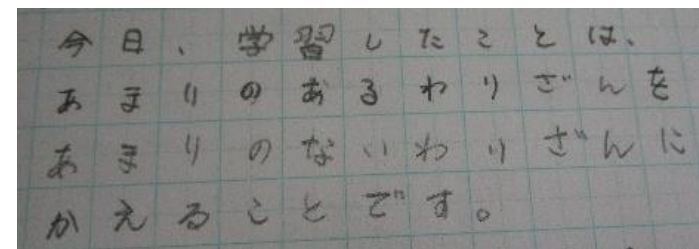 今日、学習したことは、
あまりのあるわりざんを
あまりのないわりざんに
かえることです。